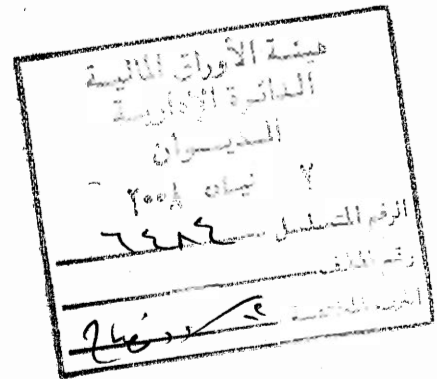 هيئة الأوراق المالية
الدائرة الإدارية
الديوان
٢ نيسان ٢٠٠٨
الرقم المتسلسل ٦٤٨٤
رقم الملف
الجهة المختصة